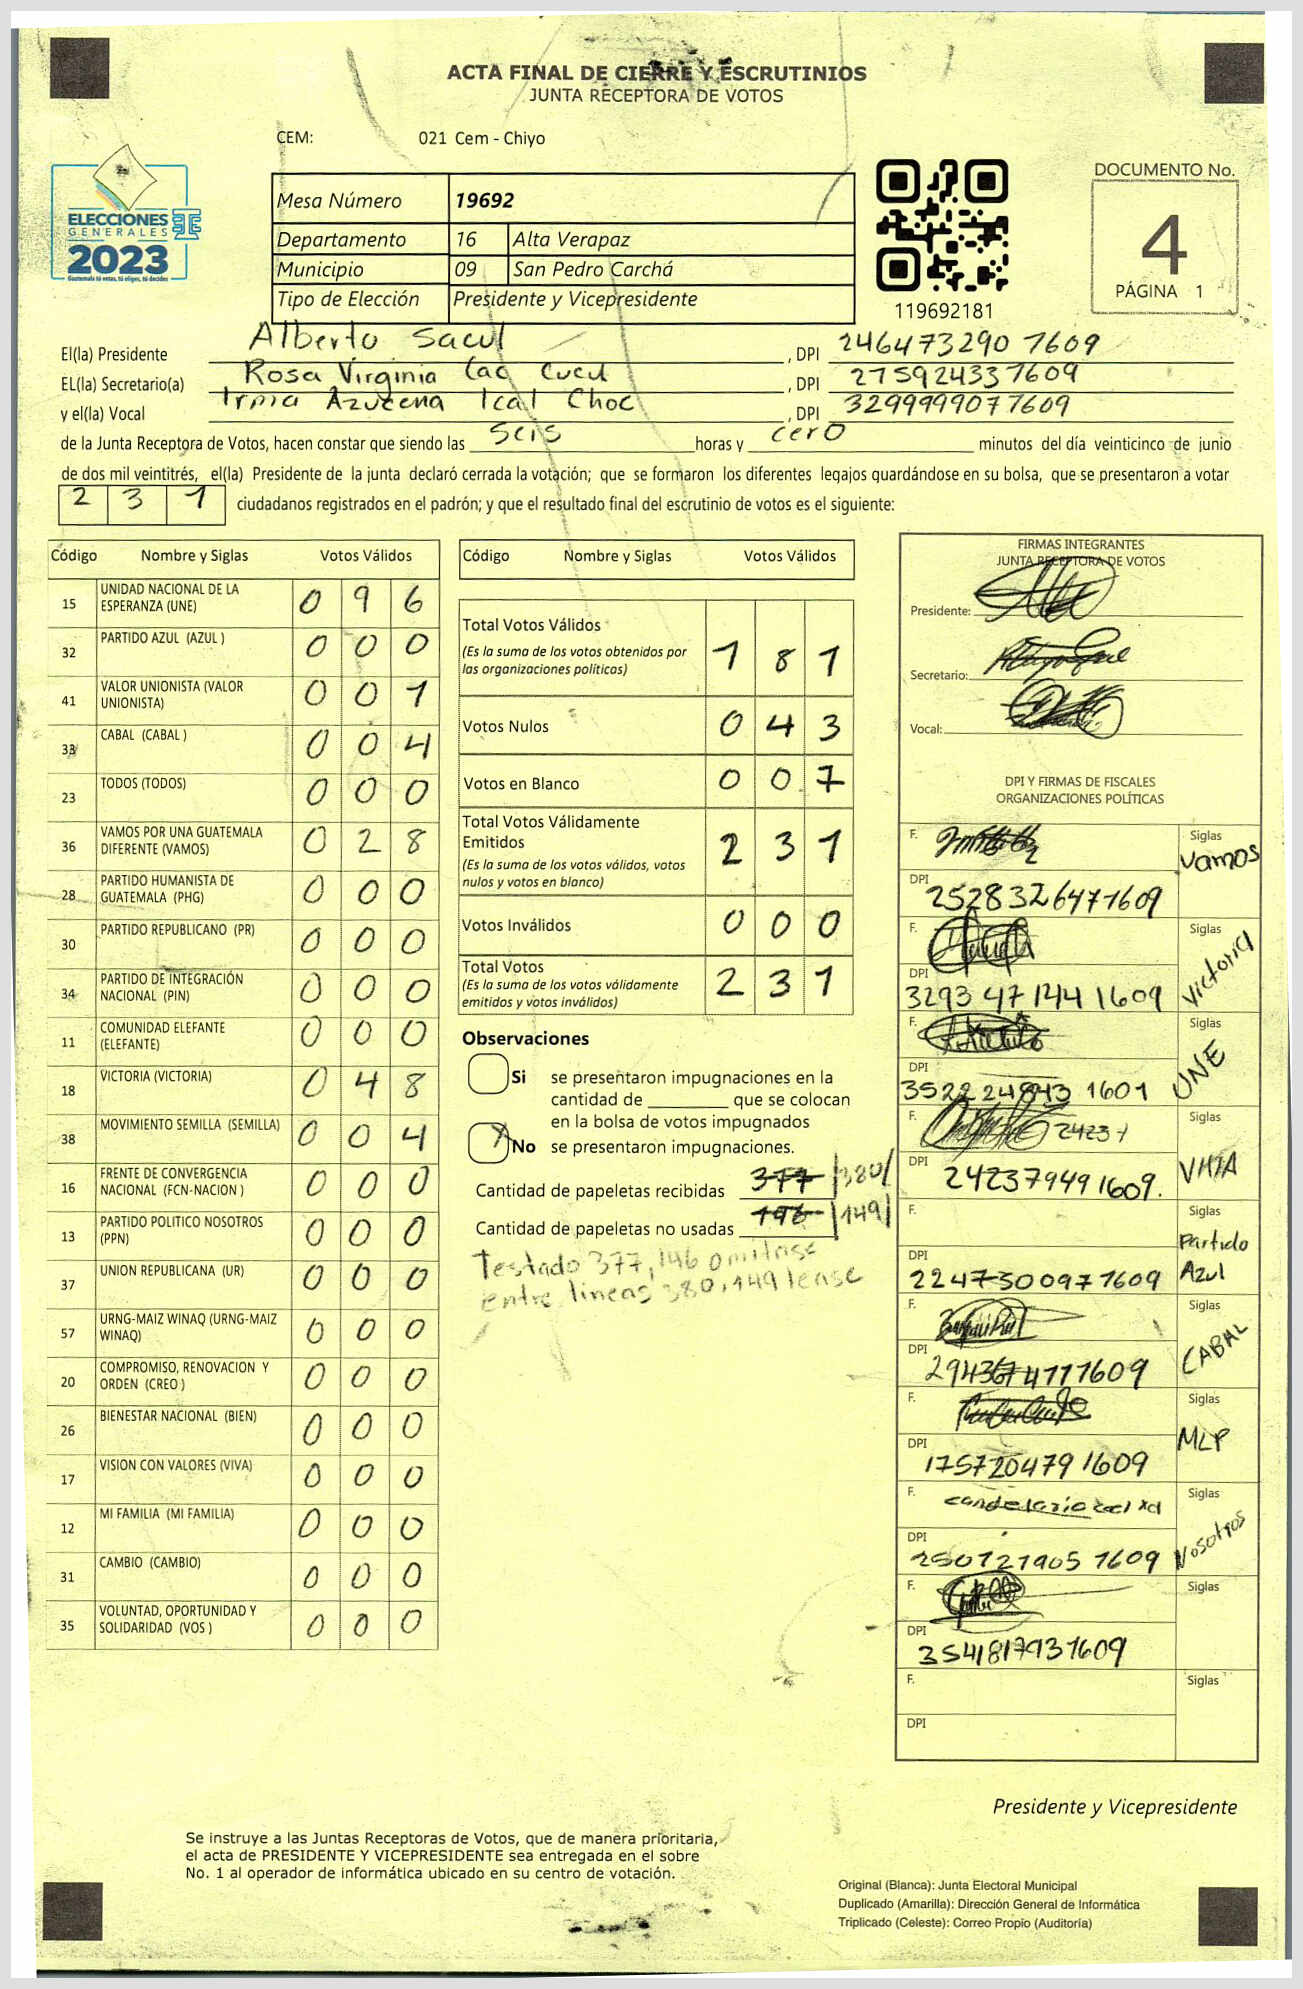 ACTA FINAL DE CIERRE Y ESCRUTINIOS
JUNTA RECEPTORA DE VOTOS
CEM: 021 Cem - Chiyo
ELECCIONES
GENERALES
2023
Guatemala tú votas, tú eliges, tú decides
Mesa Número 19692
Departamento 16 Alta Verapaz
Municipio 09 San Pedro Carchá
Tipo de Elección Presidente y Vicepresidente
119692181
DOCUMENTO No.
4
PÁGINA 1
El(la) Presidente Alberto Sacul, DPI 246473290 1609
EL(la) Secretario(a) Rosa Virginia Cac Cucul, DPI 275924337609
y el(la) Vocal Irma Azucena Ical Choc, DPI 3299999077609
de la Junta Receptora de Votos, hacen constar que siendo las seis horas y cero minutos del día veinticinco de junio
de dos mil veintitrés, el(la) Presidente de la junta declaró cerrada la votación; que se formaron los diferentes legajos quardándose en su bolsa, que se presentaron a votar
231 ciudadanos registrados en el padrón; y que el resultado final del escrutinio de votos es el siguiente:
Código Nombre y Siglas Votos Válidos
15 UNIDAD NACIONAL DE LA ESPERANZA (UNE) 0 9 6
32 PARTIDO AZUL (AZUL ) 0 0 0
41 VALOR UNIONISTA (VALOR UNIONISTA) 0 0 1
33 CABAL (CABAL ) 0 0 4
23 TODOS (TODOS) 0 0 0
36 VAMOS POR UNA GUATEMALA DIFERENTE (VAMOS) 0 2 8
28 PARTIDO HUMANISTA DE GUATEMALA (PHG) 0 0 0
30 PARTIDO REPUBLICANO (PR) 0 0 0
34 PARTIDO DE INTEGRACIÓN NACIONAL (PIN) 0 0 0
11 COMUNIDAD ELEFANTE (ELEFANTE) 0 0 0
18 VICTORIA (VICTORIA) 0 4 8
38 MOVIMIENTO SEMILLA (SEMILLA) 0 0 4
16 FRENTE DE CONVERGENCIA NACIONAL (FCN-NACION ) 0 0 0
13 PARTIDO POLITICO NOSOTROS (PPN) 0 0 0
37 UNION REPUBLICANA (UR) 0 0 0
57 URNG-MAIZ WINAQ (URNG-MAIZ WINAQ) 0 0 0
20 COMPROMISO, RENOVACION Y ORDEN (CREO ) 0 0 0
26 BIENESTAR NACIONAL (BIEN) 0 0 0
17 VISION CON VALORES (VIVA) 0 0 0
12 MI FAMILIA (MI FAMILIA) 0 0 0
31 CAMBIO (CAMBIO) 0 0 0
35 VOLUNTAD, OPORTUNIDAD Y SOLIDARIDAD (VOS ) 0 0 0
Código Nombre y Siglas Votos Válidos
Total Votos Válidos 1 8 1
(Es la suma de los votos obtenidos por
las organizaciones políticas)
Votos Nulos 0 4 3
Votos en Blanco 0 0 7
Total Votos Válidamente
Emitidos 2 3 1
(Es la suma de los votos válidos, votos
nulos y votos en blanco)
Votos Inválidos 0 0 0
Total Votos 2 3 1
(Es la suma de los votos válidamente
emitidos y votos inválidos)
Observaciones
Si se presentaron impugnaciones en la
cantidad de ________ que se colocan
en la bolsa de votos impugnados
X No se presentaron impugnaciones.
Cantidad de papeletas recibidas 377 /380/
Cantidad de papeletas no usadas 146 /149/
Testado 377, 146 omitase
entre lineas 380, 149 lease
FIRMAS INTEGRANTES
JUNTA RECEPTORA DE VOTOS
Presidente:
Secretario:
Vocal:
DPI Y FIRMAS DE FISCALES
ORGANIZACIONES POLÍTICAS
F. Siglas Vamos
DPI 2528326471609
F. Siglas Victoria
DPI 3293 47 1441609
F. Siglas UNE
DPI 3522 24843 1601
F. 24237 Siglas
DPI 2423794911609.
F. Siglas Partido Azul
DPI 2247300971609
F. Siglas CABAL
DPI 2943674771609
F. Siglas MLP
DPI 1757204791609
F. Siglas Nosotros
DPI 250721905 1609
F. Siglas
DPI 3541817931609
F. Siglas
DPI
Presidente y Vicepresidente
Se instruye a las Juntas Receptoras de Votos, que de manera prioritaria,
el acta de PRESIDENTE Y VICEPRESIDENTE sea entregada en el sobre
No. 1 al operador de informática ubicado en su centro de votación.
Original (Blanca): Junta Electoral Municipal
Duplicado (Amarilla): Dirección General de Informática
Triplicado (Celeste): Correo Propio (Auditoría)